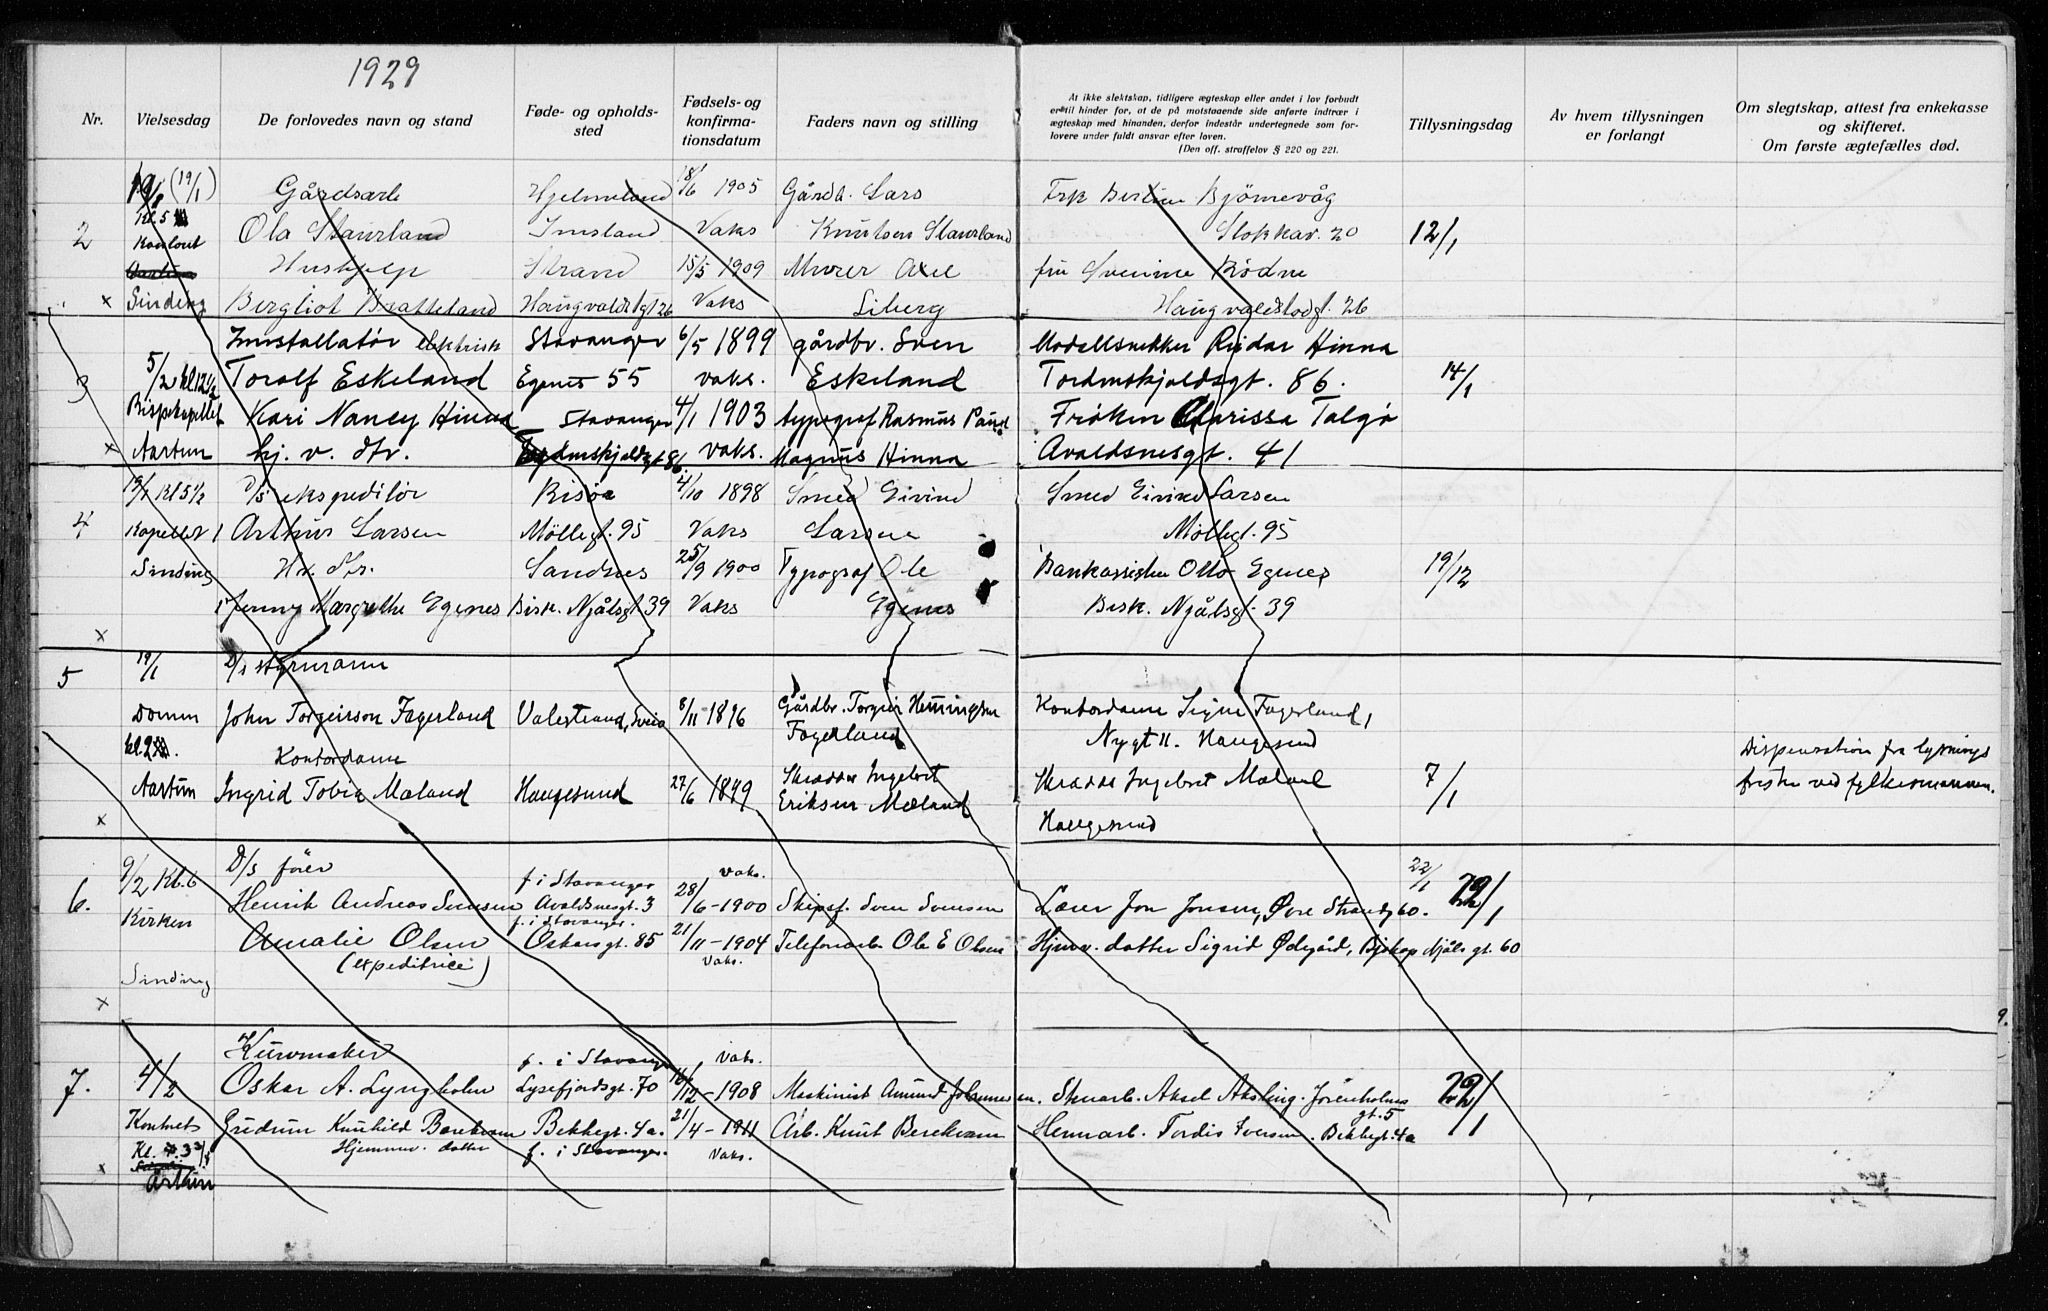 1929
Nr.
Vielsesdag
De forlovedes navn og stand
Føde- og opholds-
sted
Fødsels- og
konfirma-
tionsdatum
Faders navn og stilling
At ikke slektskap, tidligere ægteskap eller andet i lov forbudt
er til hinder for, at de på motstaaende side anførte indtrær i
ægteskap med hinanden, derfor indestår undertegnede som for-
lovere under fuldt ansvar efter loven.
(Den off. straffelov § 220 og 221.
Tillysningsdag
Av hvem tillysningen
er forlangt
Om slegtskap, attest fra enkekasse
og skifteret.
Om første ægtefælles død.
2
(19/1)
Kl 5
Kontoret
Sinding
x
Gårdsarb
Ola Staurland
Hushjelp
Bergliot Bratteland
Hjelmeland
Imsland
Strand
Haugvaldstgt 26
18/6 1905
Vaks
15/5 1909
Vaks
Gårdb. Lars
Knutsen Staurland
Murer Axel
Liberg
Frk Bertine Bjørnevåg
Slokkav. 20
fru Svenine Rödne
Haugvaldstadgt. 26
12/1
3
5/2 kl 12 1/2
Bispekapellet
Aartun
x
Installatør elektrisk
Toralf Eskeland
Kari Nancy Hinna
hj. v. dtr.
Stavanger
Egenes 55
Stavanger
Tordenskjoldsgt 86
6/5 1899
vaks.
4/1 1903
vaks.
gårdbr. Sven
Eskeland
typograf Rasmus Paul
Magnus Hinna
Modellsnekker Reidar Hinna
Tordenskjoldsgt. 86.
Frøken Clarissa Talgø
Avaldsnesgt. 41
14/1
4
19/1 Kl 5 1/2
Kapellet
Sinding
x
D/s ekspeditør
Arthur Larsen
Hx. dtr.
Jenny Margrethe Egenes
Risør
Møllegt. 95
Sandnes
Bisk. Njålsgt 39
4/10 1898
Vaks
25/9 1900
Vaks
Smed Eivind
Larsen
Typograf Ole
Egenes
Smed Eivind Larsen
Møllegt. 95
Bankassisten Otto Egenes
Bisk. Njålsgt. 39
19/12
5
19/1
Domen
kl. 2
Aartun
x
D/s styrmann
John Torgeirson Fagerland
Kontordame
Ingrid Tobia Mæland
Valestrand, Sveio
Haugesund
8/11 1896
27/6 1899
Gårdbr. Torgeir Hemingsen
Fagerland
Skrædder Ingebret
Eriksen Mæland
Kontordame Signe Fagerland,
Nygt 11. Haugesund
Skrædder Ingebret Mæland
Haugesund
7/1
Dispensation fra lysnings
fristen ved fylkesmannen.
6.
9/2 Kl. 6
Kirken
Sinding
x
D/s fører
Henrik Andreas Svensen
Amalie Olsen
(expeditrice)
f. i Stavanger
Avaldsnesgt. 3
f. i Stavanger.
Oskarsgt. 85
vaks.
28/6 - 1900
21/11 - 1904
Vaks.
Skipsf. Sven Svensen
Telefonarb. Ole E Olsen
Lærer Jon Jonsen, Øvre Strandg 60.
Hjemv. datter Sigrid Ødegård, Biskop Njåls gt. 60
22/1
22/1
7.
4/2
Kontoret
Kl. 3
Artun
x
Kurvmaker
Oskar A. Lyngholm
Gudrun Knuhild Barkvam
Hjemmev. datter
f. i Stavanger
Lysefjordsgt. 70
Bekkegt. 4a.
f. i Stavanger.
Vaks.
16/12 - 1908
21/4 - 1911
Vaks.
Maskinist Amund Johannesen.
Arb. Knut Berekvam
Skoarb. Aksel Aksling. Jørenholms
gt. 5
Hermarb. Tordis Iversen. Bekkegt. 4a
22/1